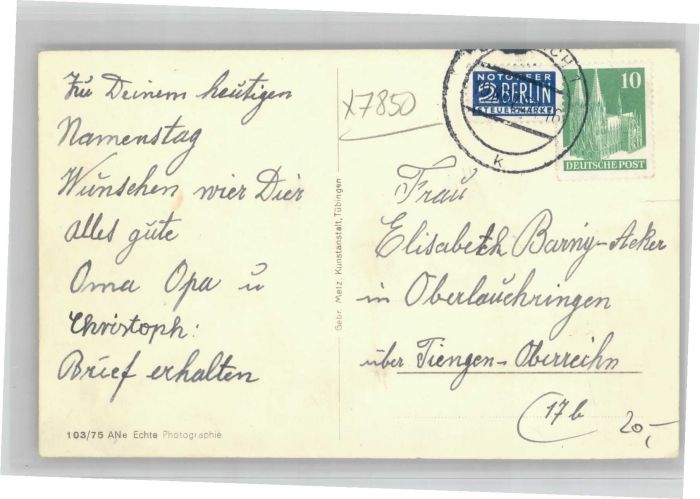 Zu Deinem heutigen
Namenstag
Wünschen wier Dier
alles gute
Oma Opa u
Christoph:
Brief erhalten
103/75 ANe Echte Photographie
Gebr. Metz, Kunstanstalt, Tübingen
x7850
NOTOPFER
2 BERLIN
STEUERMARKE
10
DEUTSCHE POST
k
Frau
Elisabeth Barny-Acker
in Oberlauchringen
über Tiengen-Oberreihn
17b
20,-